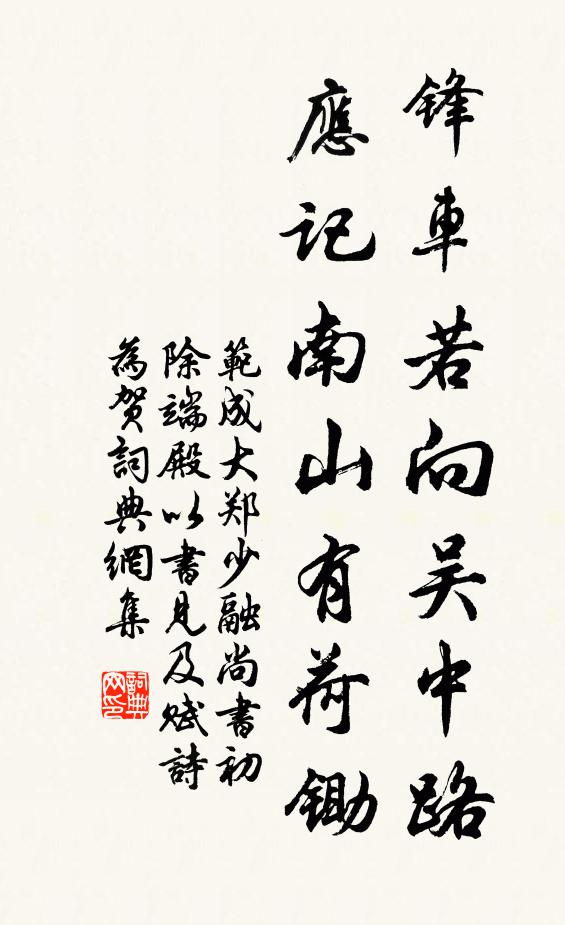 鋒車若向吴中路
應記南山有荷鋤
範成大郑少融尚書初
除端殿以書見及赋詩
為贺詞典網集
詞典网印